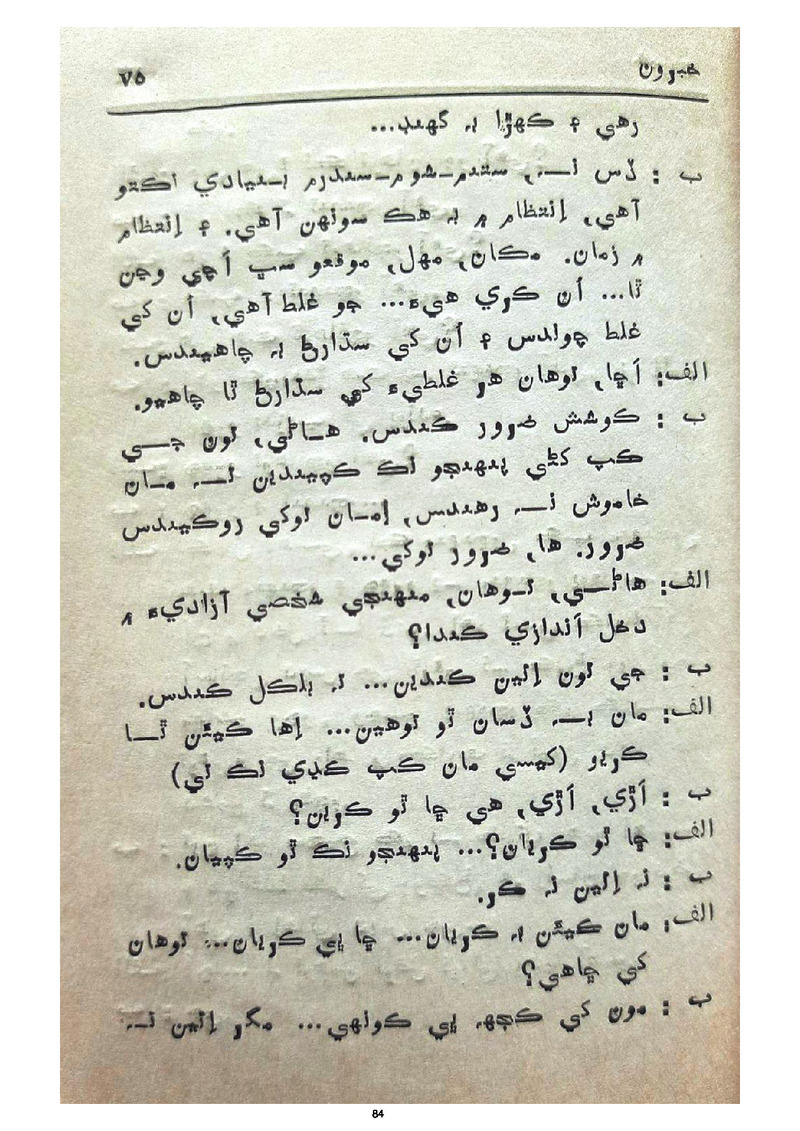 خبرون ۷۵
رهي ۽ ڪهڙا به گهند...
ب : ڏس نـــه, ستيم-شوم-سندرم بـنيادي نڪتو
آهي, اِنتظام ۾ به هڪ سونهن آهي. ۽ اِنتظام
۾ زمان. مڪان, مهل, موقعو سڀ اَچي وڃن
ٿا... اُن ڪري هيءَ... جو غلط آهي, اُن کي
غلط چوندس ۽ اُن کي سڌارڻ به چاهيندس.
الف: اَڇا, توهان هر غلطيءَ کي سڌارڻ ٿا چاهيو.
ب : ڪوشش ضرور ڪندس. هـاڻي, تون جـــي
ڪپ کڻي پنهنجو نڪ ڪپيندين تـــه مـان
خاموش نـــه رهندس, اِمـان توکي روڪيندس
ضرور. ها, ضرور توکي...
الف: هاڻـــي, تـوهان, منهنجي شخصي آزاديءَ ۾
دخل اَندازي ڪندا؟
ب : جي تون اِئين ڪندين... ته بلڪل ڪندس.
الف: مان بـــه ڏسان ٿو توهين... اِها ڪيئن ٿـــا
ڪريو (کيسي مان ڪپ ڪڍي نڪ تي)
ب : اَڙي, اَڙي, هي ڇا ٿو ڪرين؟
الف: ڇا ٿو ڪريان؟... پنهنجو نڪ ٿو ڪپيان.
ب : نه اِئين نه ڪر.
الف: مان ڪيئن به ڪريان... ڇا پي ڪريان... توهان
کي ڇاهي؟
ب : مون کي ڪجهه پي ڪونهي... مگر اِئين نـــه
84